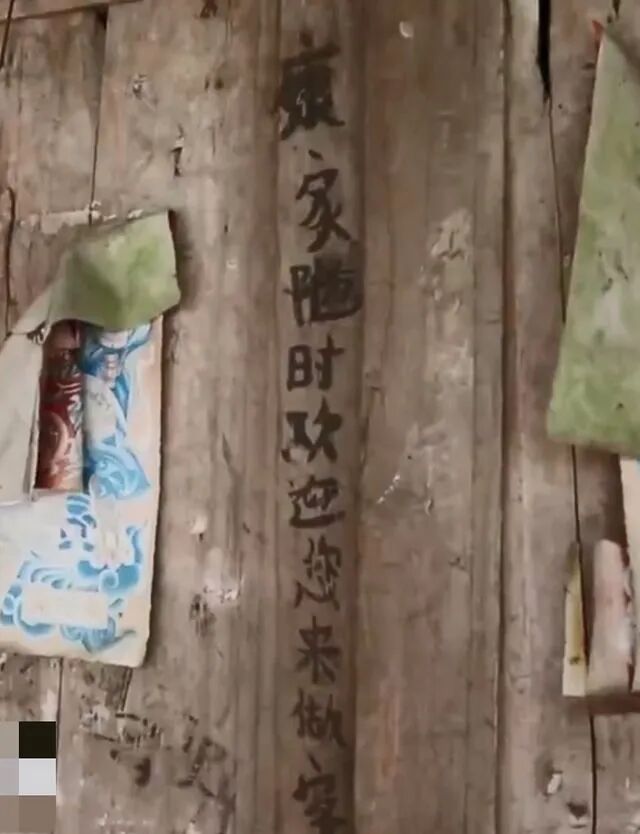 康家随时欢迎您来做客